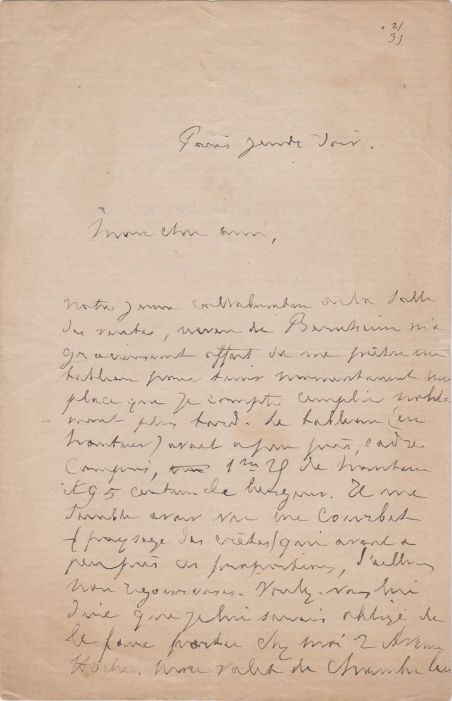 21/91
Paris jeudi soir.
Mon cher ami,
Notre jeune collaborateur de la salle
des ventes, neveu de Bernheim m'a
gracieusement offert de me prêter un
tableau pour tenir momentanément une
place que je compte remplir
plus tard. Le tableau (en
hauteur) avait à peu près, cadre
compris, 1m 25 de hauteur
et 95 cent. de largeur. Il me
semble avoir vu un Courbet
(paysage des ) qui avait à
peu près ces proportions, d'ailleurs
non rigoureuses. Voulez-vous lui
dire que je lui serais obligé de
le faire porter chez moi 2 Avenue
Hoche. Mon valet de chambre